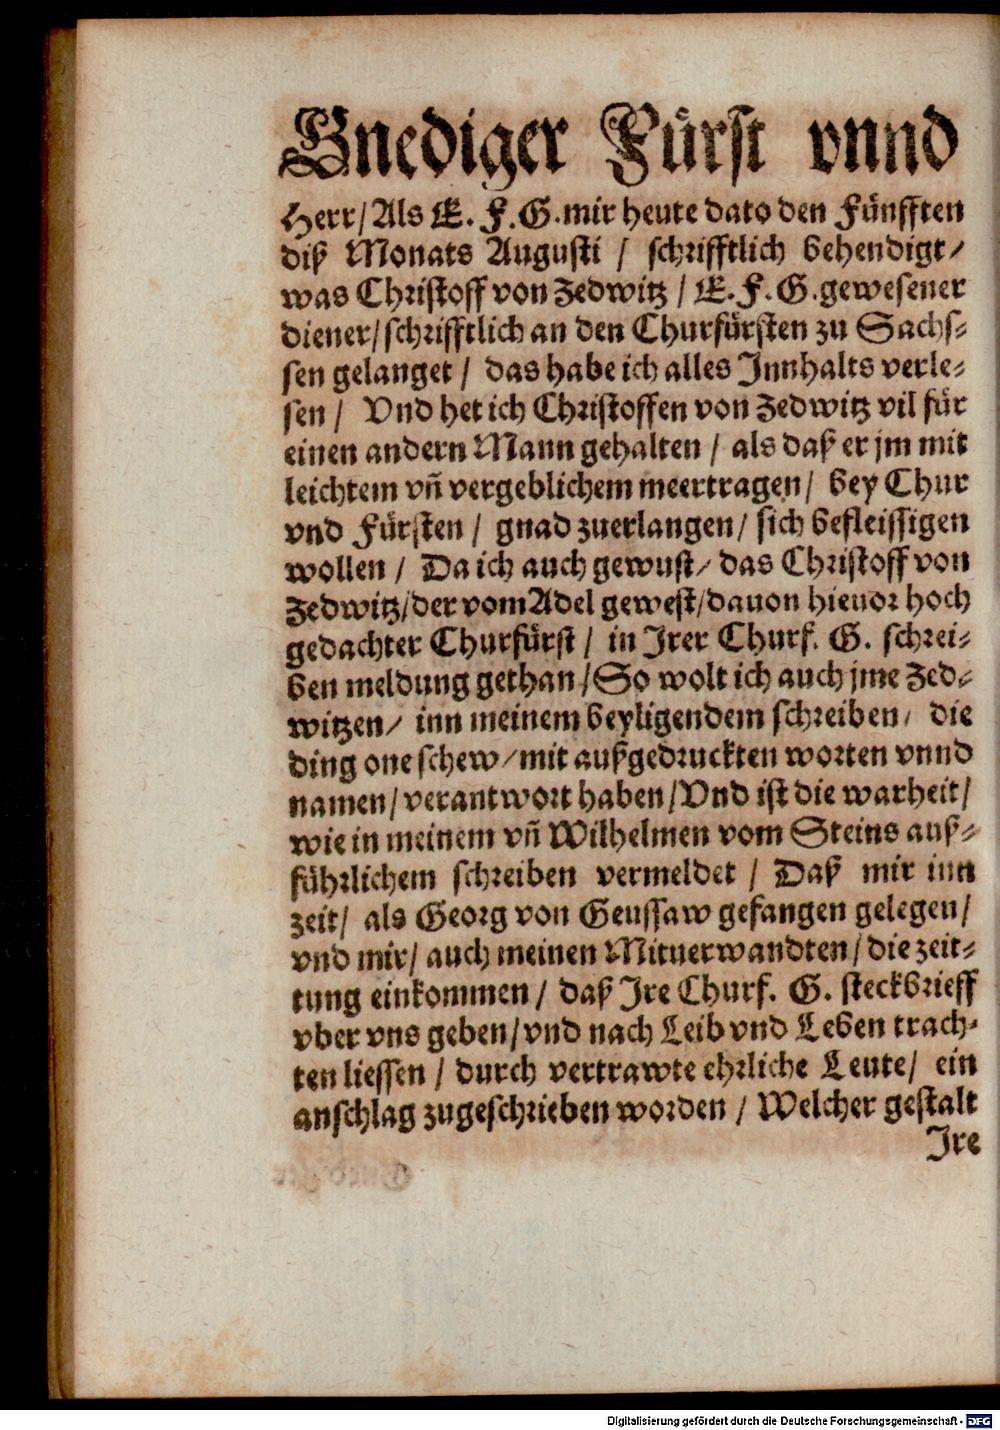 Gnediger Fürst vnnd
Herr/ Als E. F. G. mir heute dato den Fünfften
diß Monats Augusti / schrifftlich behendigt/
was Christoff von Zedwitz / E. F. G. gewesener
diener/ schrifftlich an den Churfürsten zu Sachs-
sen gelanget / das habe ich alles Innhalts verle-
sen / Vnd het ich Christoffen von Zedwitz vil für
einen andern Mann gehalten / als daß er jm mit
leichtem vñ vergeblichem meertragen/ bey Chur
vnd Fürsten / gnad zuerlangen/ sich befleissigen
wollen / Da ich auch gewust/ das Christoff von
Zedwitz/ der vom Adel gewest/ dauon hieuor hoch
gedachter Churfürst / in Irer Churf. G. schrei-
ben meldung gethan / So wolt ich auch jme Zed-
witzen/ inn meinem beyligendem schreiben/ die
ding one schew/ mit außgedruckten worten vnnd
namen/ verantwort haben/ Vnd ist die warheit/
wie in meinem vñ Wilhelmen vom Steins auß-
führlichem schreiben vermeldet / Daß mir inn
zeit/ als Georg von Geussaw gefangen gelegen/
vnd mir/ auch meinen Mituerwandten/ die zeit-
tung einkommen / daß Ire Churf. G. steckbrieff
vber vns geben/ vnd nach Leib vnd Leben trach-
ten liessen / durch vertrawte ehrliche Leute/ ein
anschlag zugeschrieben worden / Welcher gestalt
Ire
Digitalisierung gefördert durch die Deutsche Forschungsgemeinschaft - DFG